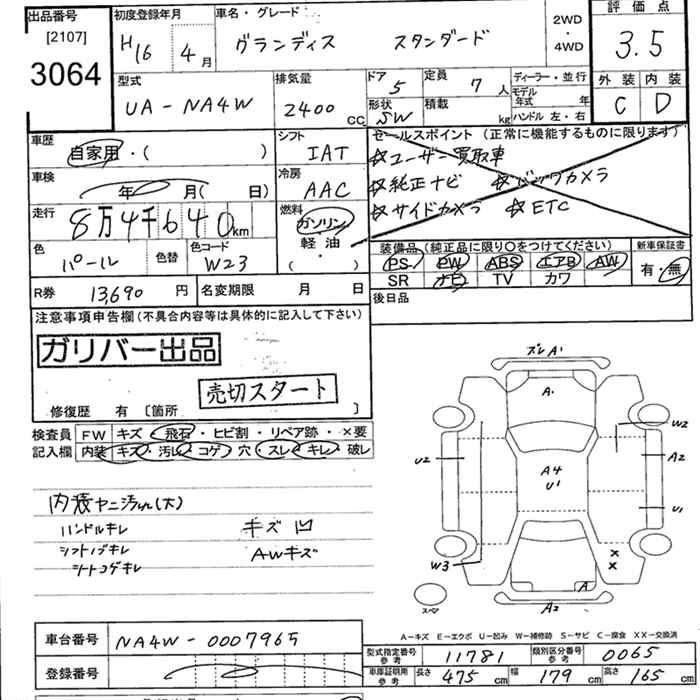 出品番号 [2107] 3064
初度登録年月 H16 4月
車名・グレード グランディス スタンダード
2WD・4WD
評価点 3.5
外装 内装
C D
型式 UA-NA4W
排気量 2400 cc
ドア 5
形状 SW
定員 7 人
積載 kg
ディーラー・並行
モデル年式 年
ハンドル 左・右
車歴 自家用・( )
シフト IAT
車検 年 月( 日)
冷房 AAC
走行 8万4千640km
燃料 ガソリン・軽油・( )
色 パール 色替 色コード W23
セールスポイント (正常に機能するものに限ります)
☆ユーザー買取車
☆純正ナビ ☆バックカメラ
☆サイドカメラ ☆ETC
装備品 (純正品に限り○をつけてください)
PS PW ABS エアB AW
SR ナビ TV カワ
新車保証書 有・無
R券 13,690円 名変期限 月 日
後日品
注意事項申告欄(不具合内容等は具体的に記入して下さい)
ガリバー出品
売切スタート
修復歴 有 [箇所 ]
検査員記入欄
FW キズ・飛石・ヒビ割・リペア跡・×要
内装 キズ・汚レ・コゲ・穴・スレ・キレ・破レ
内装ヤニ汚れ(大)
ハンドルキレ キズ凹
シフトノブキレ AWキズ
シートコゲキレ
ズレA1
A・
W2
U2 A4 U1 A2
U1
W3 × ×
A
スペア A2
A-キズ E-エクボ U-凹み W-補修跡 S-サビ C-腐食 XX-交換済
車台番号 NA4W-0007965
登録番号
型式指定番号 参考 11781 類別区分番号 参考 0065
車庫証明用 参考 長さ 475 cm 幅 179 cm 高さ 165 cm